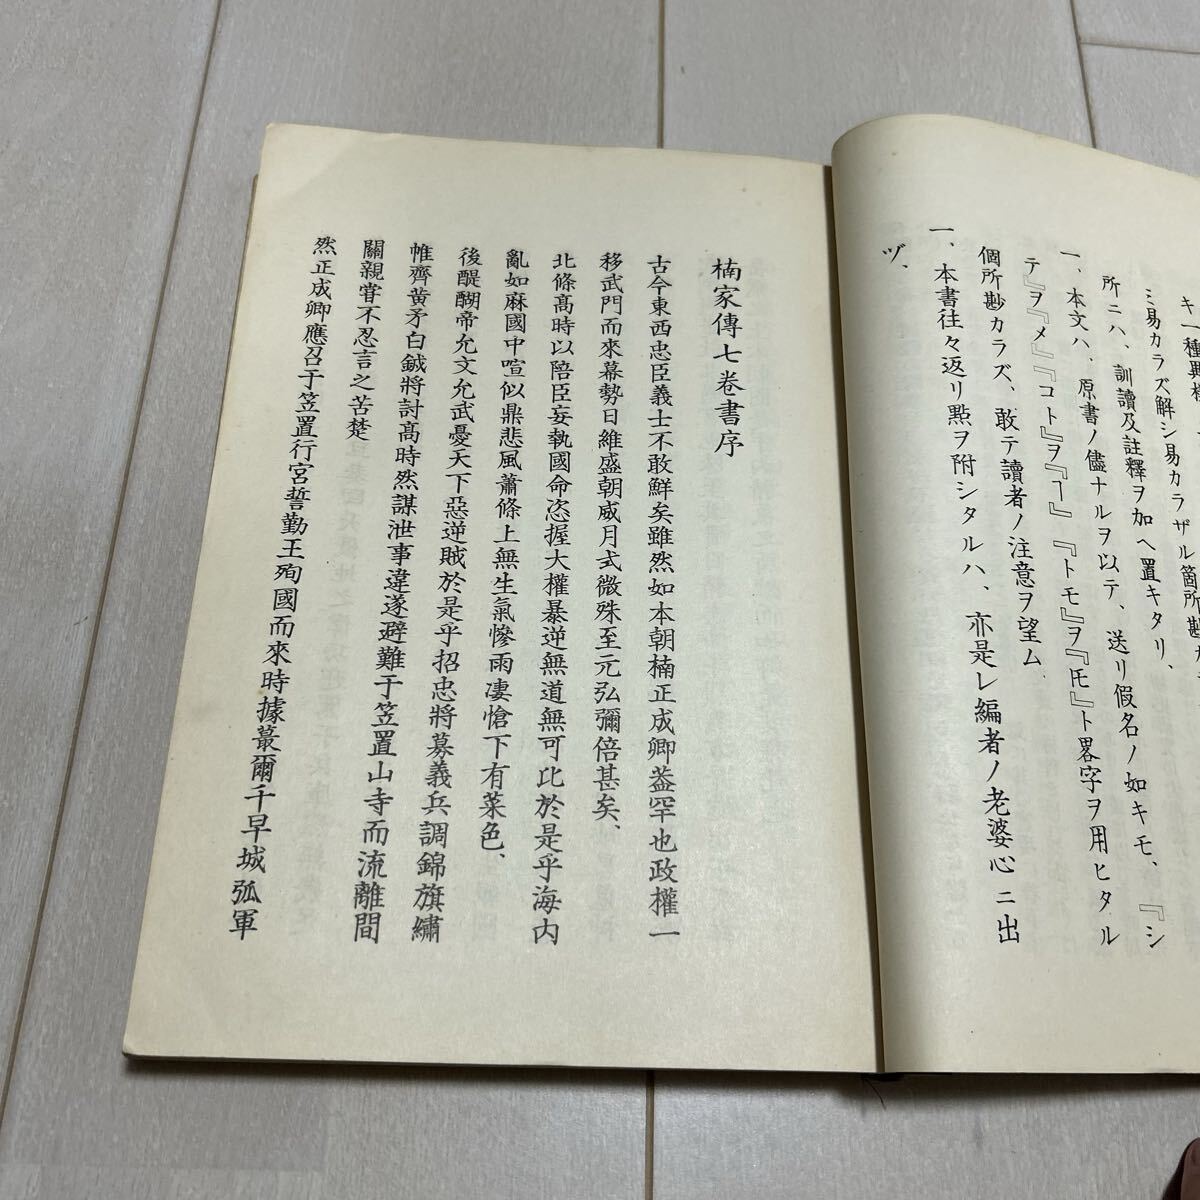 キ一種異様
ミ易カラズ解シ易カラザル箇所尠カ
所ニハ、訓讀及註釋ヲ加ヘ置キタリ、
一、本文ハ、原書ノ儘ナルヲ以テ、送リ假名ノ如キモ、『シ
テ』ヲ『〆』『コト』ヲ『ヿ』『トモ』ヲ『𪜈』ト畧字ヲ用ヒタル
個所尠カラズ、敢テ讀者ノ注意ヲ望ム
一、本書往々返リ點ヲ附シタルハ、亦是レ編者ノ老婆心ニ出
ヅ、
楠家傳七卷書序
古今東西忠臣義士不敢鮮矣雖然如本朝楠正成卿葢罕也政權一
移武門而來幕勢日維盛朝威月式微殊至元弘彌倍甚矣、
北條高時以陪臣妄執國命恣握大權暴逆無道無可比於是乎海内
亂如麻國中喧似鼎悲風蕭條上無生氣慘雨凄愴下有菜色、
後醍醐帝允文允武憂天下惡逆賊於是乎招忠將募義兵調錦旗繡
帷齊黄矛白鉞將討高時然謀泄事違遂避難于笠置山寺而流離間
關親嘗不忍言之苦楚
然正成卿應召于笠置行宮誓勤王殉國而來時據蕞爾千早城孤軍